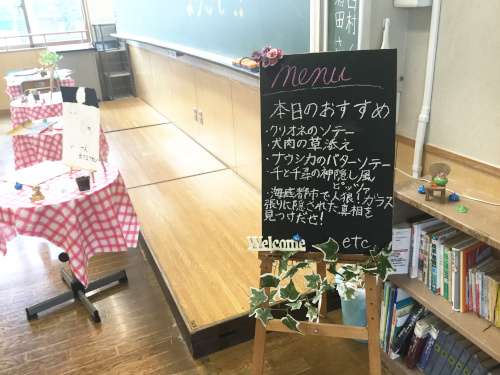 menu
本日のおすすめ
・クリオネのソテー
・犬肉の草添え
・ナウシカのバターソテー
・千と千尋の神隠し風
ピッツァ
・海底都市で人狼！ガラス
張りに隠された真相を
見つけだせ！
etc...
Welcome